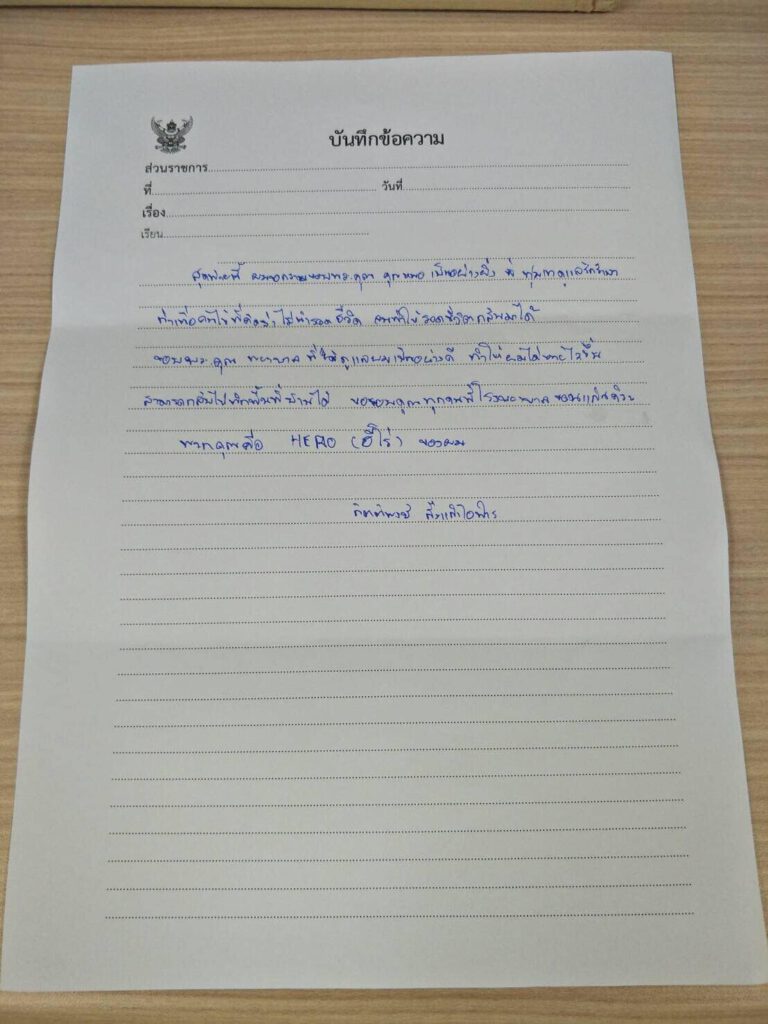 บันทึกข้อความ
ส่วนราชการ
ที่ วันที่
เรื่อง
เรียน
สุดท้ายนี้ ผมขอกราบขอบพระคุณ คุณหมอ เป็นอย่างยิ่ง ที่ ทุ่มเทดูแลรักษา
ทำเพื่อคนไข้ที่คิดว่า ไม่น่ารอดชีวิต จนทำให้รอดชีวิตกลับมาได้
ขอบพระคุณ พยาบาล ที่ ดูแลผมเป็นอย่างดี ทำให้ผมได้หายไวขึ้น
สามารถกลับไปพักฟื้นที่บ้านได้ ขอขอบคุณทุกคนที่โรงพยาบาล ขอนแก่นด้วย
พวกคุณคือ HERO (ฮีโร่) ของผม